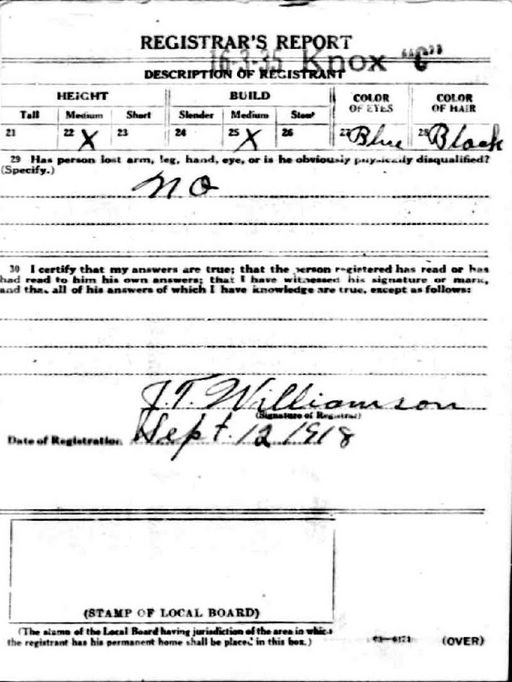 REGISTRAR'S REPORT
16-3-35 Knox "C"
DESCRIPTION OF REGISTRANT
HEIGHT BUILD COLOR OF EYES COLOR OF HAIR
Tall Medium Short Slender Medium Stout
21 22 X 23 24 25 X 26 27 Blue 28 Black
29 Has person lost arm, leg, hand, eye, or is he obviously physically disqualified?
(Specify.)
No
30 I certify that my answers are true; that the person registered has read or has
had read to him his own answers; that I have witnessed his signature or mark,
and that all of his answers of which I have knowledge are true, except as follows:
J.T. Williamson
(Signature of Registrar)
Date of Registration Sept. 12 1918
(STAMP OF LOCAL BOARD)
(The stamp of the Local Board having jurisdiction of the area in which
the registrant has his permanent home shall be placed in this box.)
(OVER)